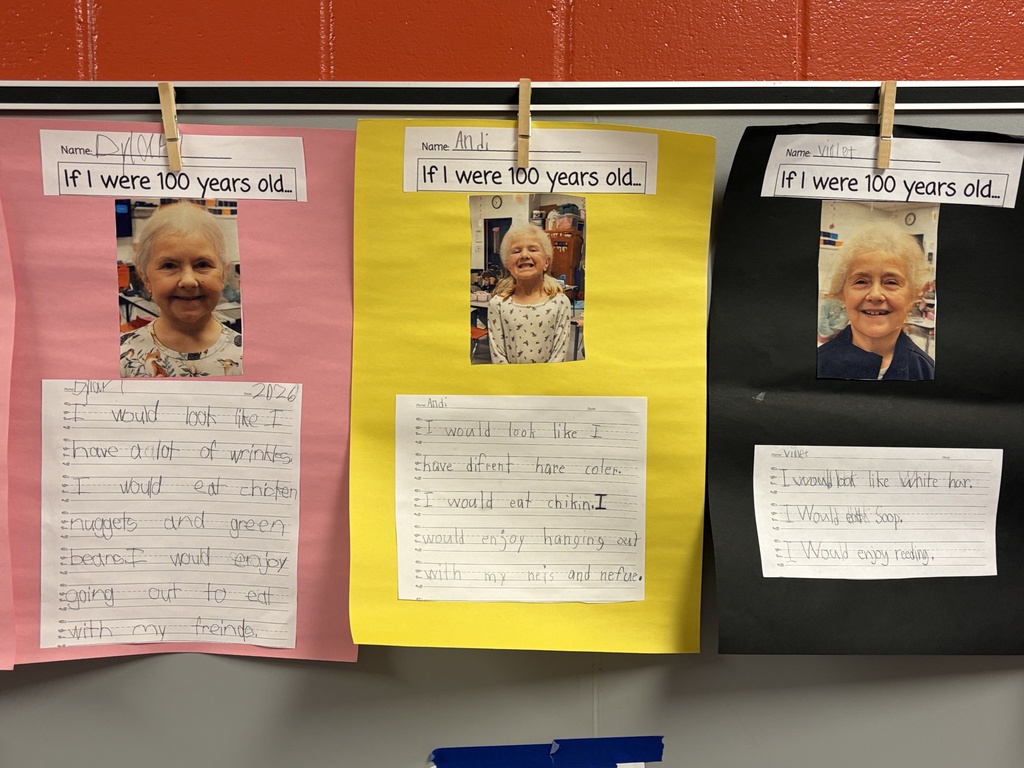 Name:
If I were 100 years old...
2026
I would look like I
have a lot of wrinkles.
I would eat chicken
nuggets and green
beans. I would enojoy
going out to eat
with my freinds.
Name: Andi
If I were 100 years old...
Andi
I would look like I
have difrent hare coler.
I would eat chikin. I
would enjoy hanging out
with my neis and nefue.
Name: Villet
If I were 100 years old...
Villet
I would look like White har.
I Would Soop.
I Would enjoy reeding.